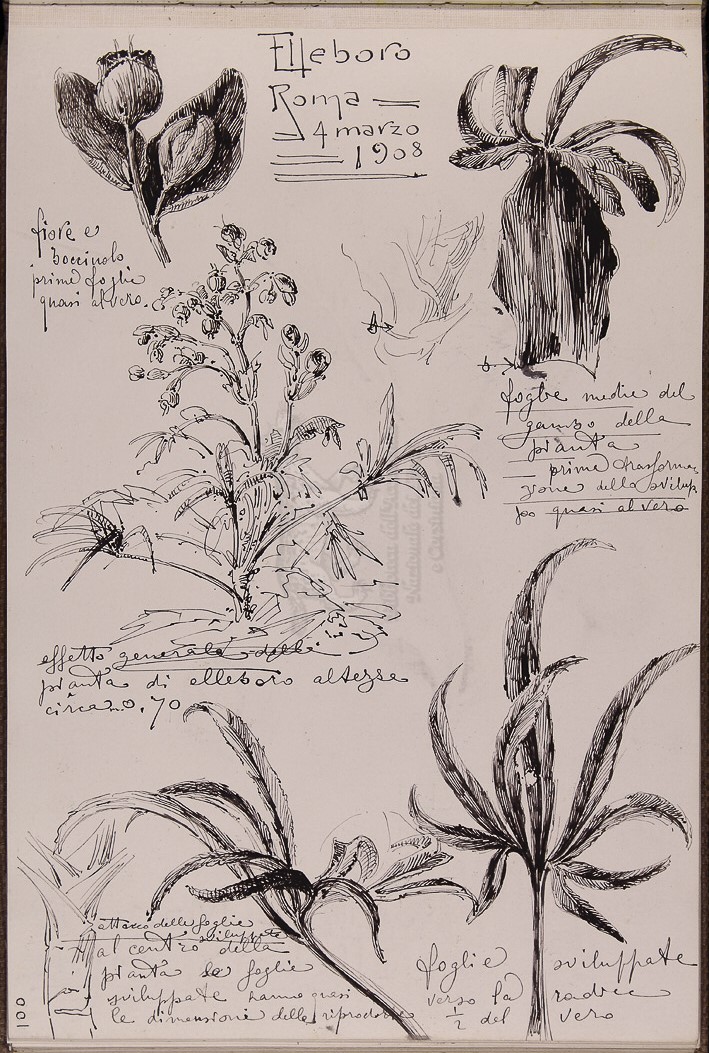 Elleboro
Roma
4 marzo
1908
fiore e
bocciuolo
prime foglie
quasi al vero.
b
b
foglie medie del
gambo della
pianta
prime trasforma
zione dello svilup
po quasi al vero
effetto generale della
pianta di elleboro altezza
circa m. 0.70
attacco delle foglie
sviluppate
al centro della
pianta le foglie
sviluppate hanno quasi
le dimensione della riproduzione
foglie sviluppate
verso la radice
1/2 del vero
100